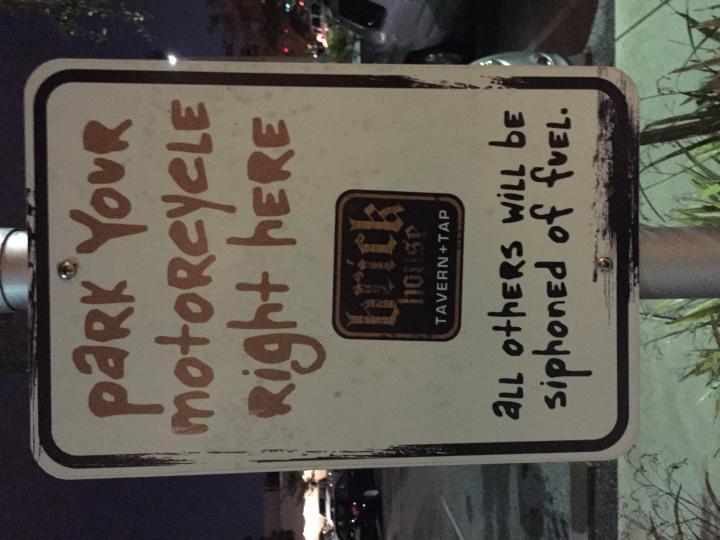 park Your
motorcycle
right here
brick
house
TAVERN+TAP
all others will be
siphoned of fuel.